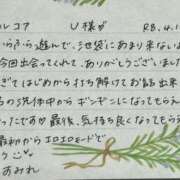 ルコア U様が R8.4.1
らふら遊んで、池袋にあまり来ないは
今回出会ってくれて、ありがとうございまし
ってはじめから打ち解けてお話出来
の洗体中からギンギンになってもらえ
ったです♡最後、気持ち良くなってもら
最初からエロエロモードで
あみれ